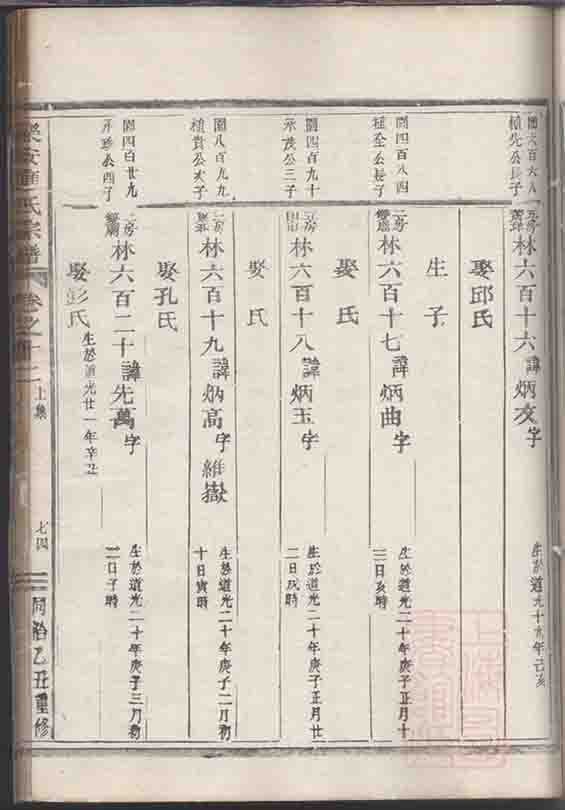 植先公長子
五房
林六百十六諱炳友字
生於道光十九年己亥
娶邱氏
園四百八四
植全公長子
二房
林六百十七諱炳曲字
生於道光二十年庚子正月十
三日亥時
生子
娶氏
園四百九十
承茂公三子
林六百十八諱炳玉字
生於道光二十年庚子正月廿
二日戌時
娶氏
園八百九九
植貴公次子
林六百十九諱炳高字維嶽
生於道光二十年庚子二月初
十日寅時
娶孔氏
園四百廿九
承珍公四子
二房
林六百二十諱先萬字
生於道光二十年庚子三月初
二日子時
娶彭氏
生於道光廿一年辛丑
氏宗譜
卷之
上集
七四
同治乙丑重修
上海
圖書館藏